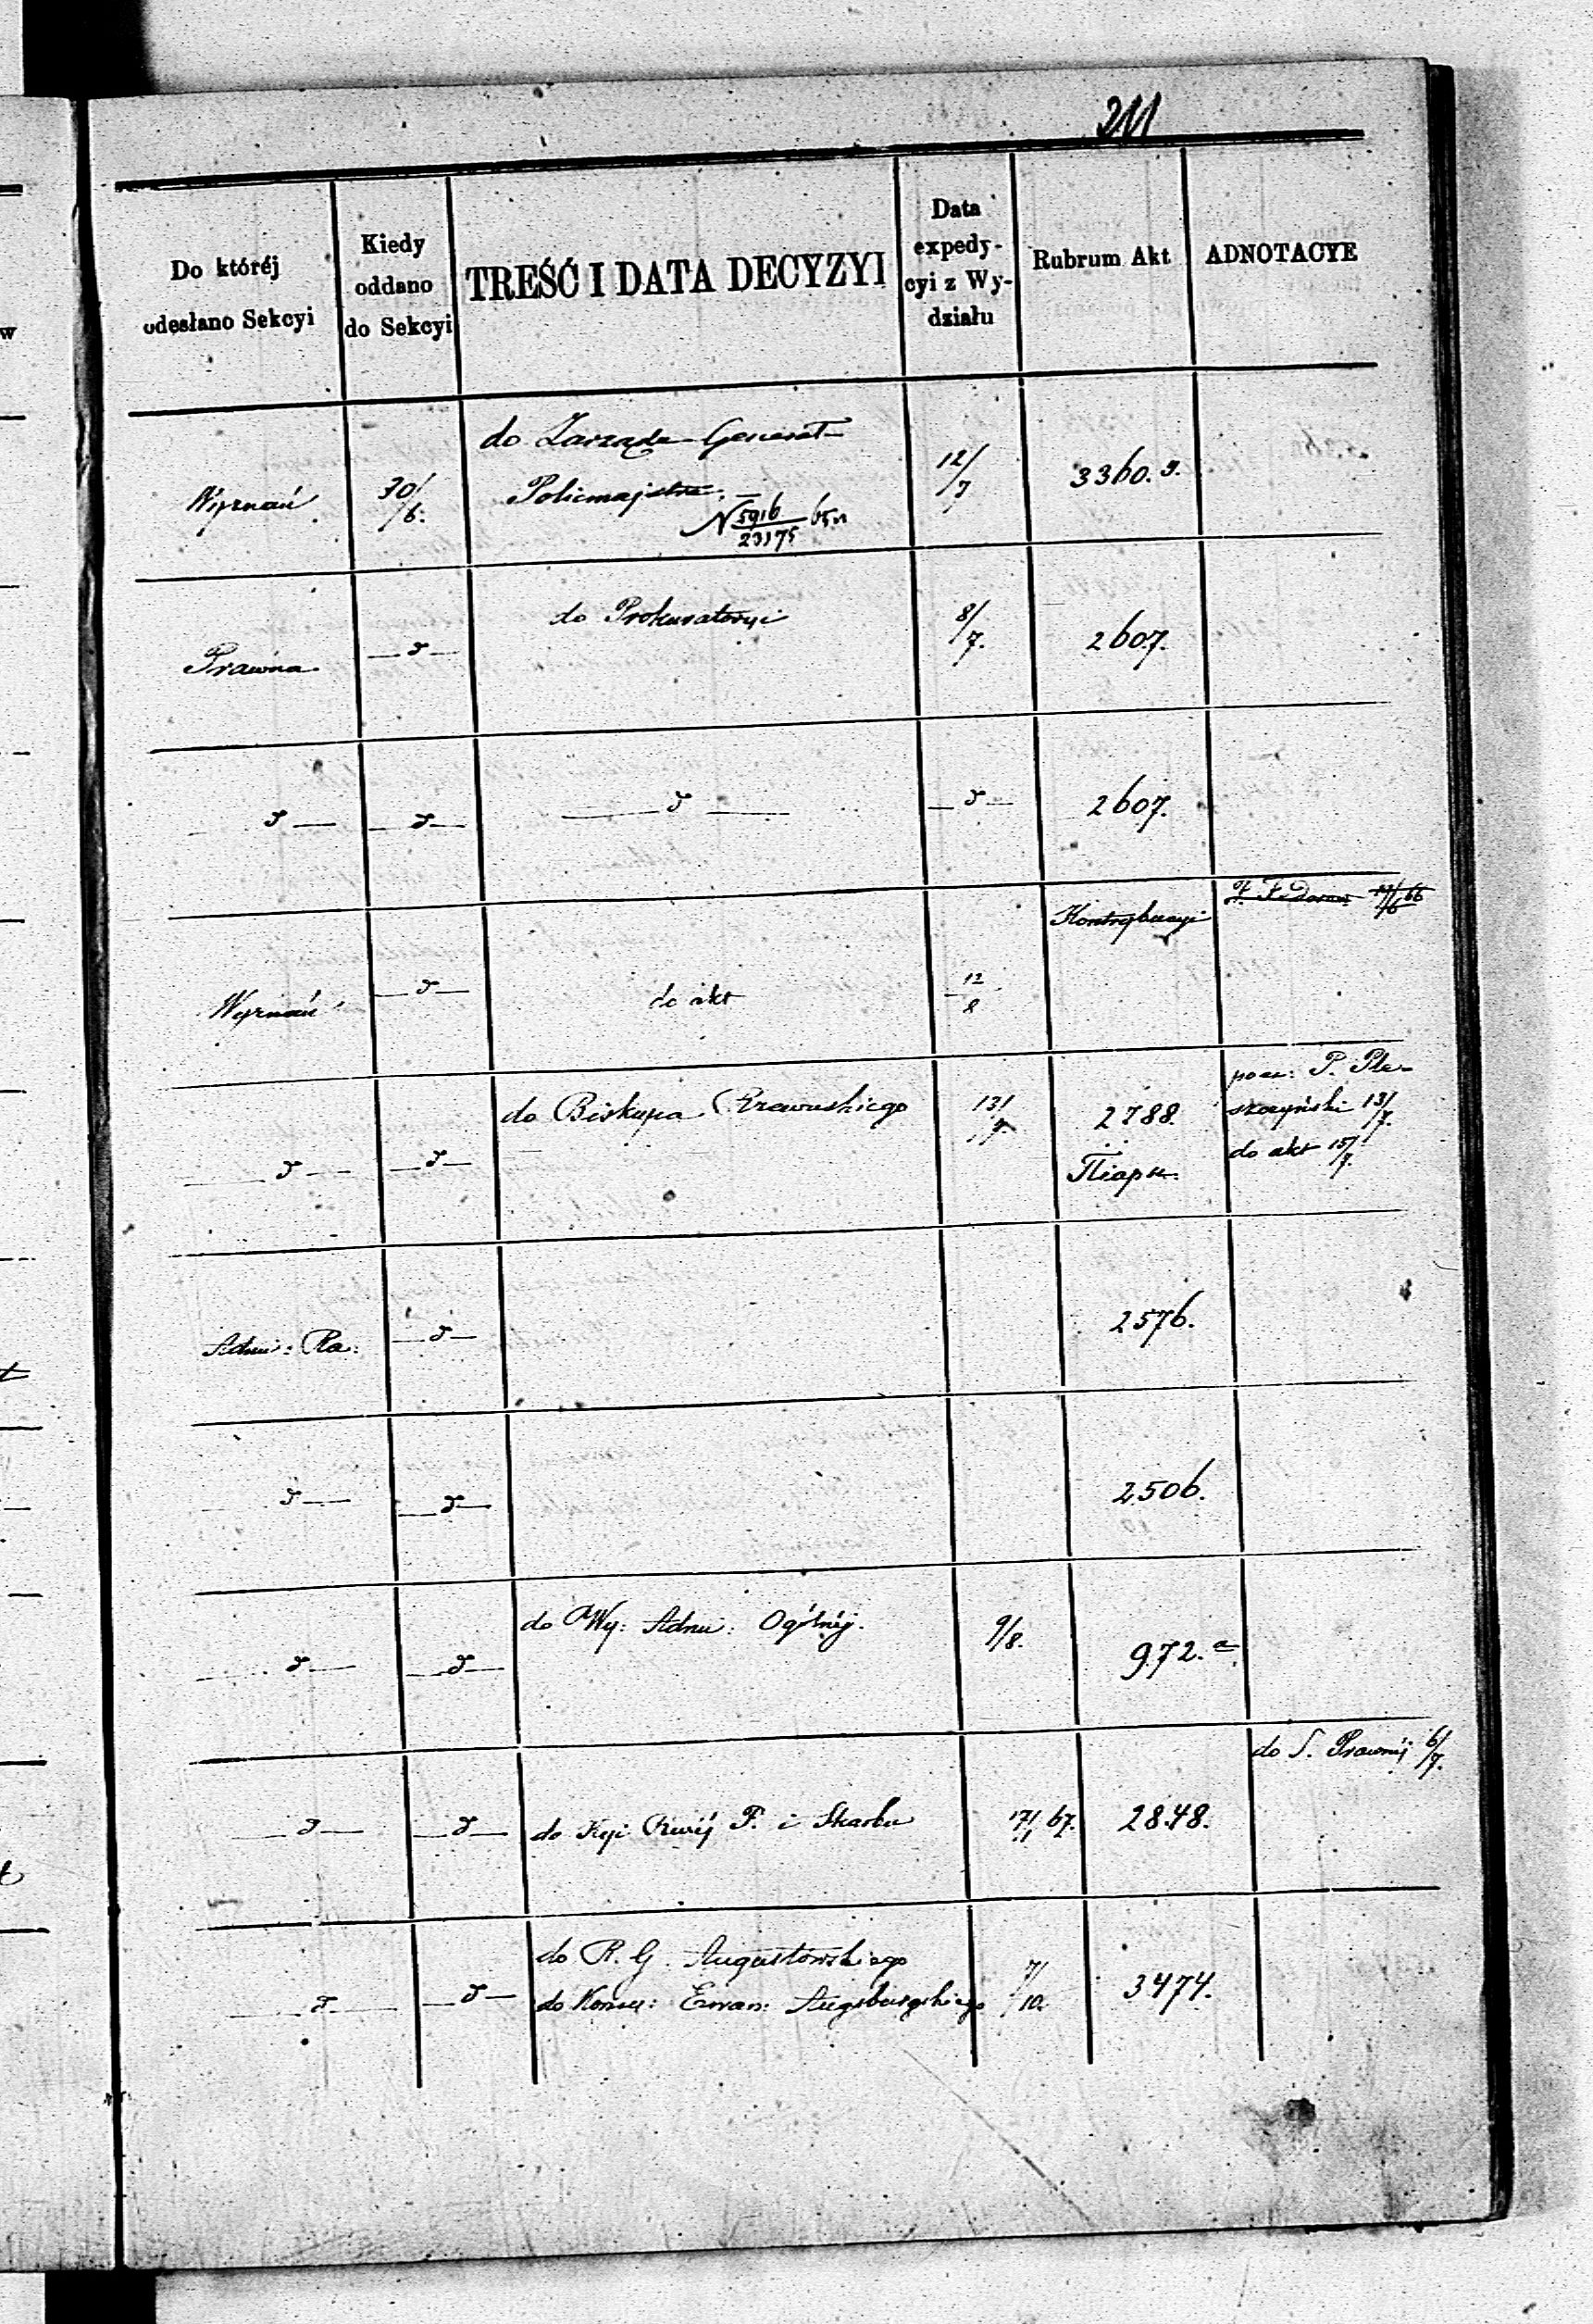 211
Do któréj odesłano Sekcyi
Kiedy oddano do Sekcyi
TREŚĆ I DATA DECYZYI
Data expedycyi z Wydziału
Rubrum Akt
ADNOTACYE
w
do Zarządu Generał
Wyznań 30/6. Policmajstra. 12/7 3360.
N 5916/23175
do Prokuratoryi 8/7.
Prawna — d — 2607.
— d — — d — — d — — d — 2607.
Kontrybucyi
Wyznań — d — do akt 12/8
do Biskupa Rzewuskiego 13/7. 2788. P. Ple-
szczyński 13/7.
— d — — d — Піары. do akt 15/7.
Admi: Ra: — d — 2576.
— d — — d — 2506.
do Wy: Admi: Ogólnéj. 9/8.
— d — — d — 972. a
do S. Prawnéj 6/7.
— d — — d — do Kyi Rwéj P. i Skarbu 17/1 67. 2848.
do R. G. Augustowskiego 7/10.
— d — — d — do Konsy: Ewan: Augsburgskiego 3474.